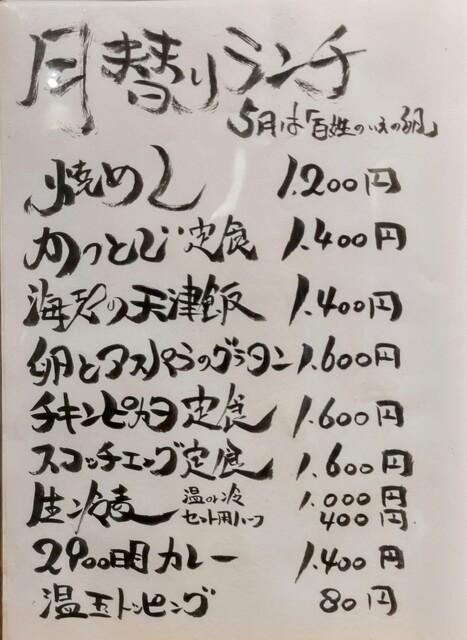 月替りランチ
5月は「百姓のいえの卵」
焼めし 1.200円
かつとじ定食 1.400円
海老の天津飯 1.400円
卵とアスパラのグラタン 1.600円
チキンピカタ定食 1.600円
スコッチエッグ定食 1.600円
生冷麦 温or冷 1.000円
セット用ハーフ 400円
2900日目カレー 1.400円
温玉トッピング 80円